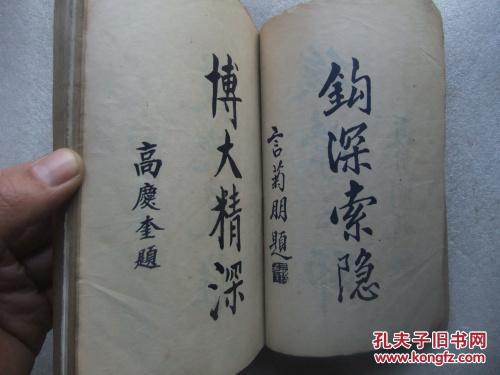 鈎深索隐
言菊朋題
博大精深
高慶奎題
孔夫子旧书网
www.kongfz.com